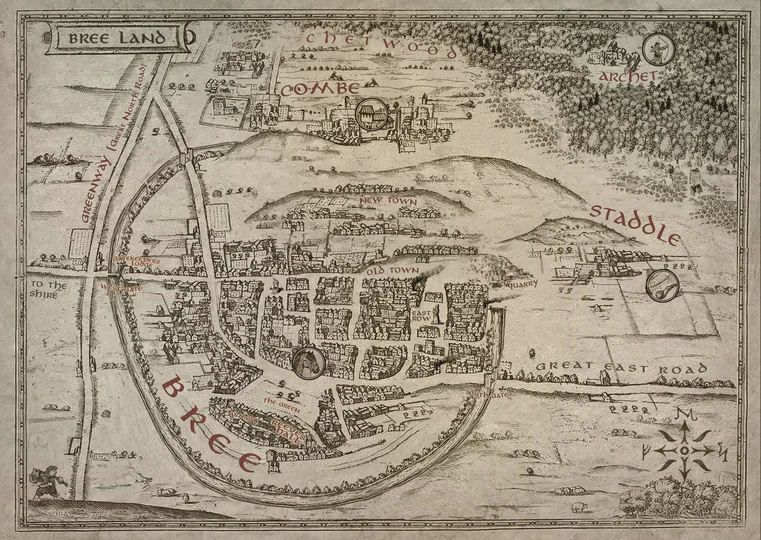 BREE LAND
CHETWOOD
ARCHET
COMBE
GREENWAY (GREAT NORTH ROAD)
NEW TOWN
STADDLE
GATEKEEPERS
TO THE
SHIRE
OLD TOWN
QUARRY
EAST
ROW
GREAT EAST ROAD
THE GREEN
BREE